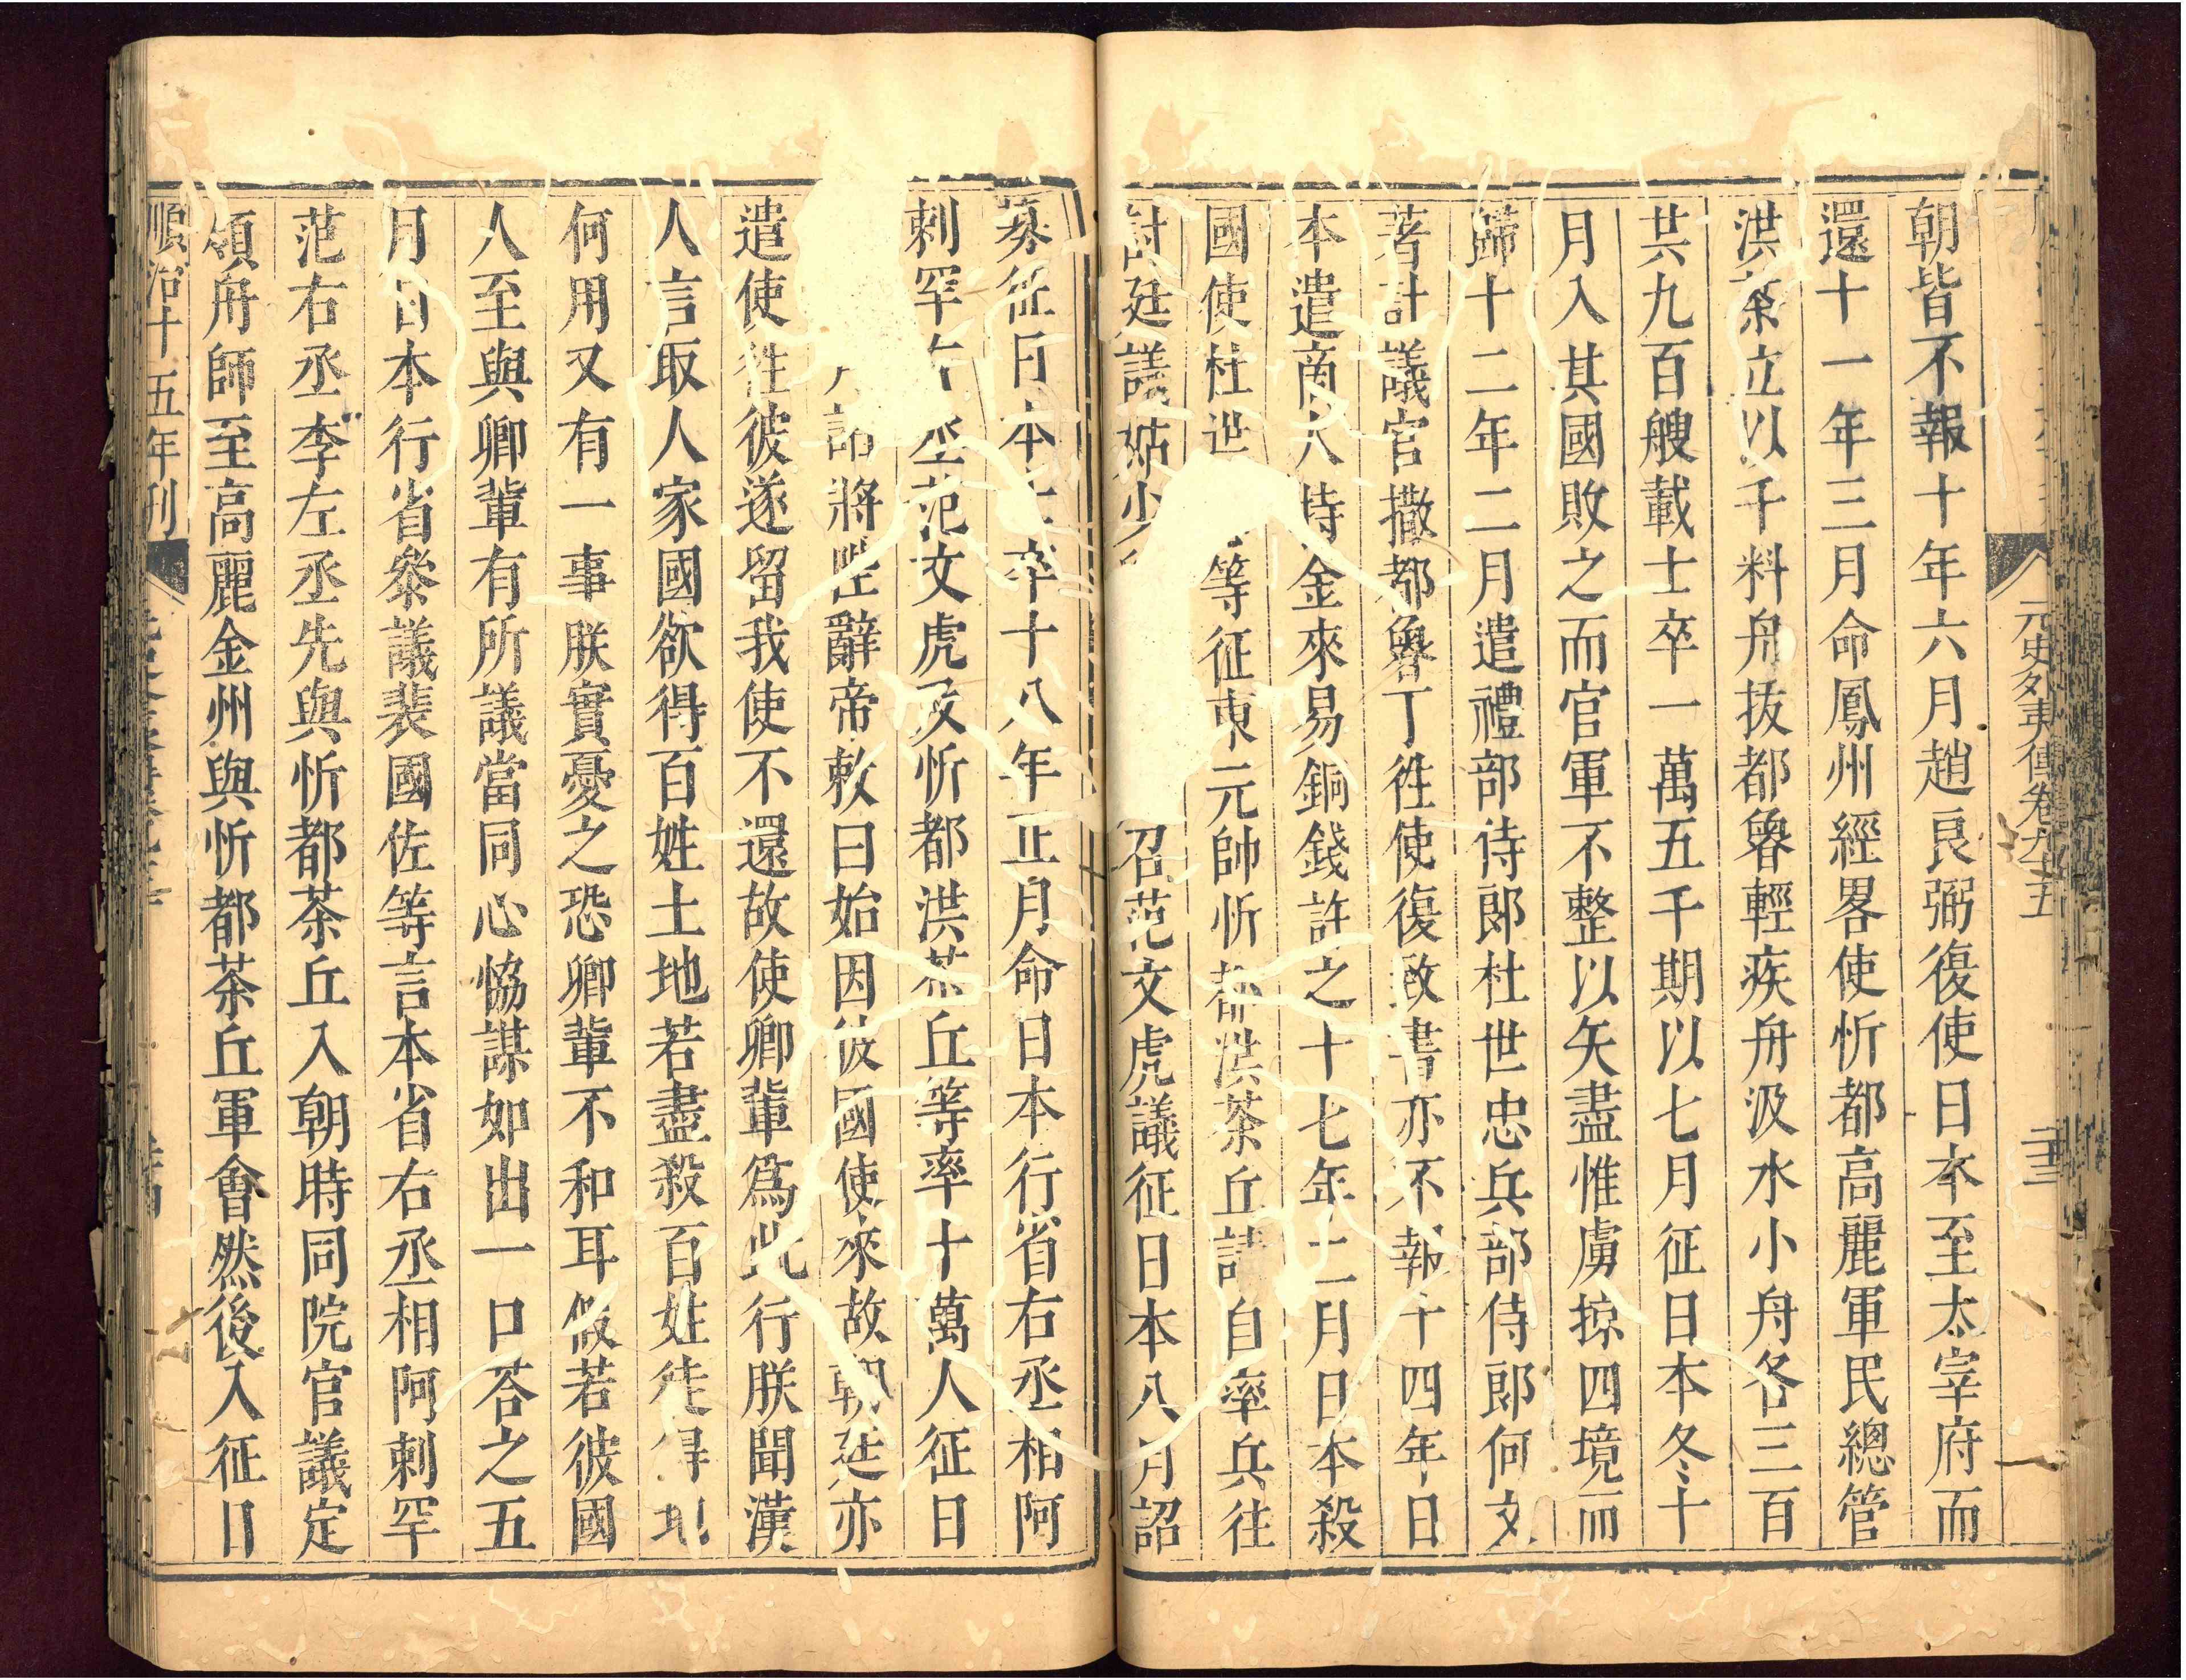 元史外夷傳卷九十五
朝皆不報十年六月趙良弼復使日本至太宰府而
還十一年三月命鳳州經畧使忻都高麗軍民總管
洪茶立以千料舟拔都魯輕疾舟汲水小舟各三百
共九百艘載士卒一萬五千期以七月征日本冬十
月入其國敗之而官軍不整以矢盡惟虜掠四境而
歸十二年二月遣禮部侍郎杜世忠兵部侍郎何文
著計議官撒都魯丁徃使復致書亦不報十四年日
本遣商人持金來易銅錢許之十七年二月日本殺
國使杜世等征東元帥忻都洪茶丘請自率兵往
討廷議姑少召范文虎議征日本八月詔
募征日本士卒十八年正月命日本行省右丞相阿
剌罕右丞范文虎及忻都洪茶丘等率十萬人征日
月詔將陛辭帝敕曰始因彼國使來故朝廷亦
遣使徃彼遂留我使不還故使卿輩爲此行朕聞漢
人言取人家國欲得百姓土地若盡殺百姓徒得地
何用又有一事朕實憂之恐卿輩不和耳假若彼國
人至與卿輩有所議當同心恊謀如出一口荅之五
月日本行省叅議裴國佐等言本省右丞相阿剌罕
范右丞李左丞先與忻都茶丘入朝時同院官議定
領舟師至高麗金州與忻都茶丘軍會然後入征日
順治十五年刊